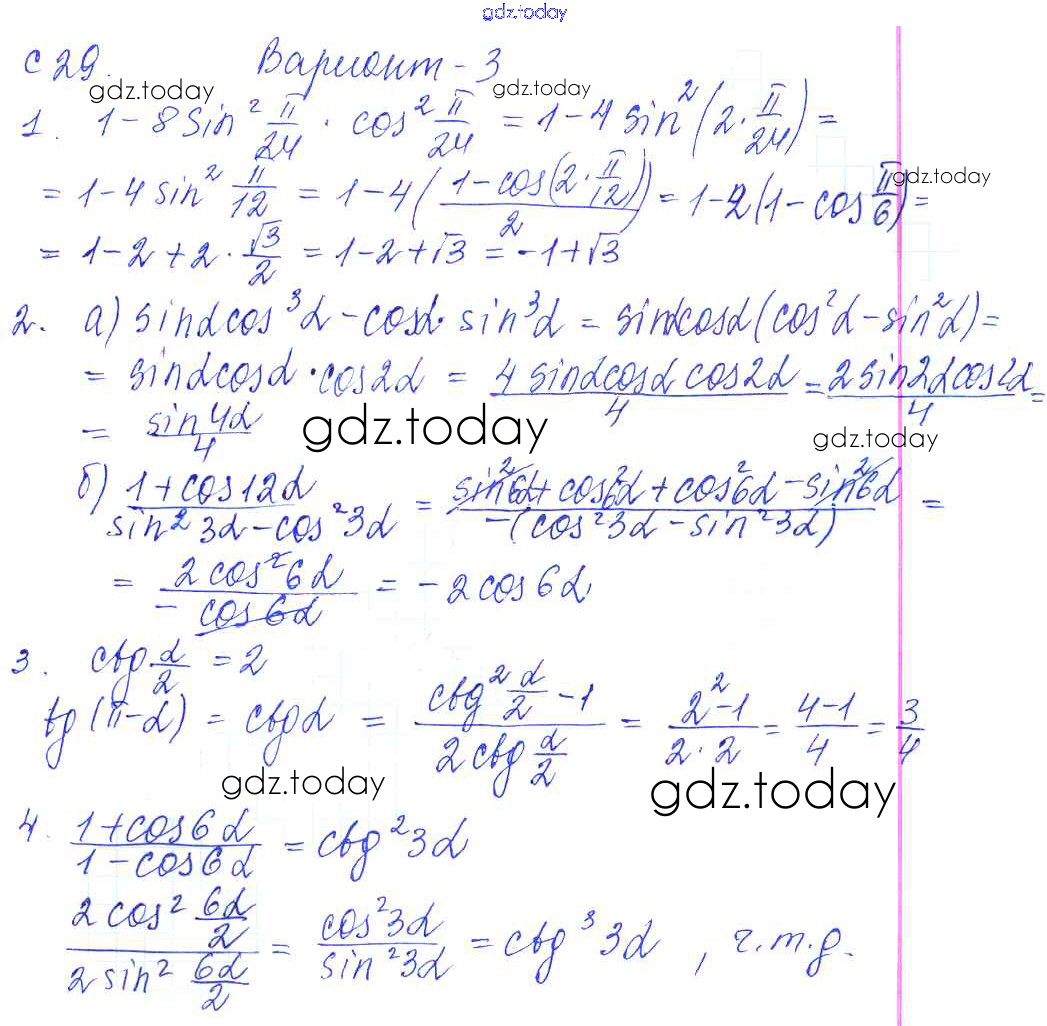 gdz.today
С 29. Вариант - 3
gdz.today gdz.today
1. 1 - 8 sin² π/24 · cos² π/24 = 1 - 4 sin² (2 · π/24) =
= 1 - 4 sin² π/12 = 1 - 4 ( (1 - cos(2 · π/12))/2 ) = 1 - 2 (1 - cos π/6) =
gdz.today
= 1 - 2 + 2 · √3/2 = 1 - 2 + √3 = -1 + √3
2. а) sinα cos³α - cosα · sin³α = sinα cosα (cos²α - sin²α) =
= sinα cosα · cos2α = (4 sinα cosα cos2α)/4 = (2 sin2α cos2α)/4 =
= (sin 4α)/4
gdz.today gdz.today
б) (1 + cos12α)/(sin² 3α - cos² 3α) = (sin²6α + cos²6α + cos²6α - sin²6α)/(-(cos²3α - sin²3α)) =
= (2 cos²6α)/(-cos6α) = -2 cos 6α
3. ctg α/2 = 2
tg (π - α) = ctgα = (ctg² α/2 - 1)/(2 ctg α/2) = (2² - 1)/(2 · 2) = (4 - 1)/4 = 3/4
gdz.today gdz.today
4. (1 + cos6α)/(1 - cos6α) = ctg² 3α
(2 cos² 6α/2)/(2 sin² 6α/2) = (cos²3α)/(sin²3α) = ctg³ 3α, ч.т.д.